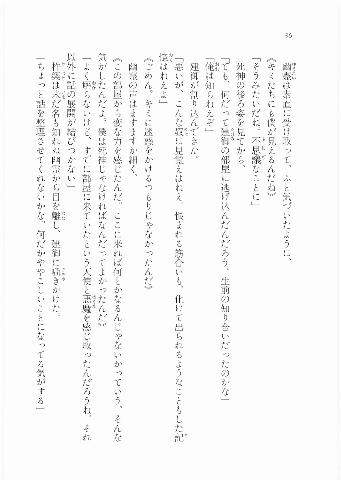 96
幽霊は素直に受け取って、ふと気づいたように、
《キミたちにも僕が見えるんだね》
「そうみたいだね。不思議なことに」
死神の後ろ姿を見てから、
「でも、何だって建御の部屋に逃げ込んだんだろう。生前の知り合いだったのかな」
「俺は知られえぞ」
建御が割り込んできた。
「悪いが、こんな奴に見覚えはねえ。恨まれる筋合いも、化けて出られるようなこともした記
憶はねえよ」
《ごめん。キミに迷惑をかけるつもりじゃなかったんだ》
幽霊の声はますますか細く、
《この部屋から変な力を感じたんだ。ここに来れば何とかなるんじゃないかっていう、そんな
気がしたんだよ。僕は死神じゃなければなんだってよかったんだ》
「よく解らないけど、すでに部屋に来ていたという天使と悪魔を感じ取ったんだろうね。それ
以外に話の展開が結びつかない」
杵築は未だ名も知れぬ幽霊から目を離し、建御に囁きかけた。
「ちょっと話を整理させてくれないかな。何だかややこしいことになってる気がする」